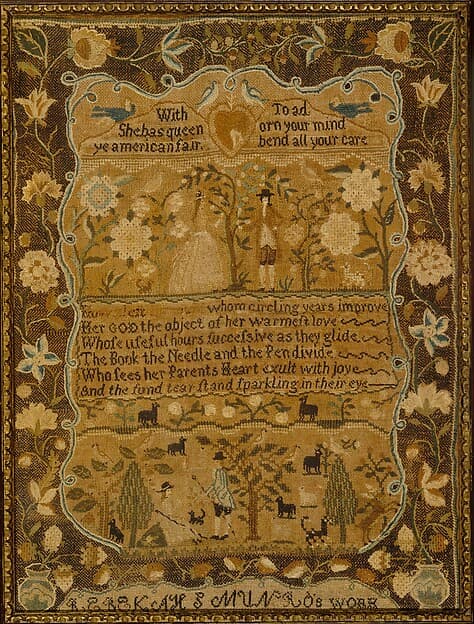 With To ad
Shebas queen orn your mind
ye american fair. bend all your care
whom circling years improve
Her GOD the object of her warmeſt love
Whoſe uſeful hours ſucceſsive as they glide
The Book the Needle and the Pen divide
Who sees her Parents Heart exult with joye
and the fund tear ſtand ſparkling in their eye
REBEKAH S MUNROs WORK